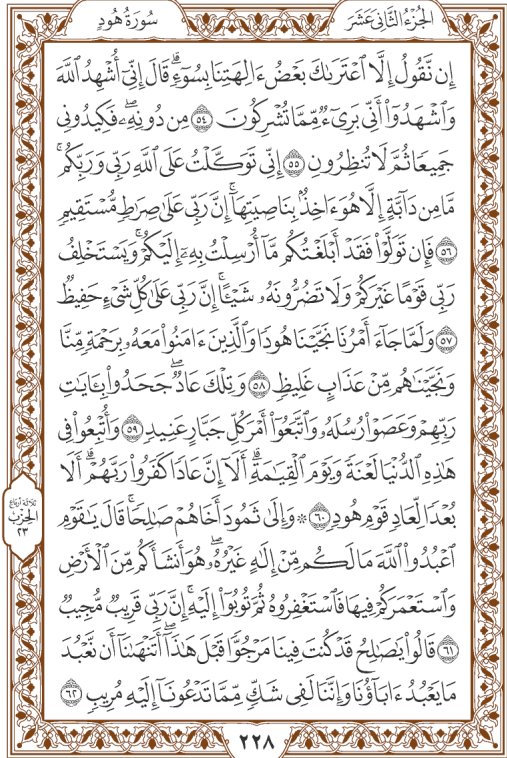 الجُزْءُ الثَّانِيَ عَشَرَ
سُورَةُ هُودٍ
إِن نَّقُولُ إِلَّا ٱعْتَرَىٰكَ بَعْضُ ءَالِهَتِنَا بِسُوٓءٖۗ قَالَ إِنِّيٓ أُشْهِدُ ٱللَّهَ
وَٱشْهَدُوٓاْ أَنِّي بَرِيٓءٞ مِّمَّا تُشْرِكُونَ ٥٤ مِن دُونِهِۦۖ فَكِيدُونِي
جَمِيعٗا ثُمَّ لَا تُنظِرُونِ ٥٥ إِنِّي تَوَكَّلْتُ عَلَى ٱللَّهِ رَبِّي وَرَبِّكُمۚ
مَّا مِن دَآبَّةٍ إِلَّا هُوَ ءَاخِذُۢ بِنَاصِيَتِهَآۚ إِنَّ رَبِّي عَلَىٰ صِرَٰطٖ مُّسْتَقِيمٖ
٥٦ فَإِن تَوَلَّوْاْ فَقَدْ أَبْلَغْتُكُم مَّآ أُرْسِلْتُ بِهِۦٓ إِلَيْكُمْۚ وَيَسْتَخْلِفُ
رَبِّي قَوْمًا غَيْرَكُمْ وَلَا تَضُرُّونَهُۥ شَيْـًٔاۚ إِنَّ رَبِّي عَلَىٰ كُلِّ شَيْءٍ حَفِيظٞ
٥٧ وَلَمَّا جَآءَ أَمْرُنَا نَجَّيْنَا هُودٗا وَٱلَّذِينَ ءَامَنُواْ مَعَهُۥ بِرَحْمَةٖ مِّنَّا
وَنَجَّيْنَٰهُم مِّنْ عَذَابٍ غَلِيظٖ ٥٨ وَتِلْكَ عَادٞۖ جَحَدُواْ بِـَٔايَٰتِ
رَبِّهِمْ وَعَصَوْاْ رُسُلَهُۥ وَٱتَّبَعُوٓاْ أَمْرَ كُلِّ جَبَّارٍ عَنِيدٖ ٥٩ وَأُتْبِعُواْ فِي
هَٰذِهِ ٱلدُّنْيَا لَعْنَةٗ وَيَوْمَ ٱلْقِيَٰمَةِۗ أَلَآ إِنَّ عَادٗا كَفَرُواْ رَبَّهُمْۗ أَلَا
بُعْدٗا لِّعَادٖ قَوْمِ هُودٖ ٦٠ ۞ وَإِلَىٰ ثَمُودَ أَخَاهُمْ صَٰلِحٗاۚ قَالَ يَٰقَوْمِ
ٱعْبُدُواْ ٱللَّهَ مَا لَكُم مِّنْ إِلَٰهٍ غَيْرُهُۥۖ هُوَ أَنشَأَكُم مِّنَ ٱلْأَرْضِ
وَٱسْتَعْمَرَكُمْ فِيهَا فَٱسْتَغْفِرُوهُ ثُمَّ تُوبُوٓاْ إِلَيْهِۚ إِنَّ رَبِّي قَرِيبٞ مُّجِيبٞ
٦١ قَالُواْ يَٰصَٰلِحُ قَدْ كُنتَ فِينَا مَرْجُوّٗا قَبْلَ هَٰذَآۖ أَتَنْهَىٰنَآ أَن نَّعْبُدَ
مَا يَعْبُدُ ءَابَآؤُنَا وَإِنَّنَا لَفِي شَكّٖ مِّمَّا تَدْعُونَآ إِلَيْهِ مُرِيبٖ ٦٢
ثلاثة أرباع
الحِزْبُ
٢٣
٢٢٨